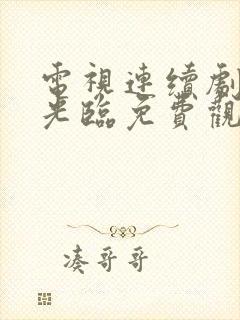 電視連續劇
光臨免費觀
凑哥哥